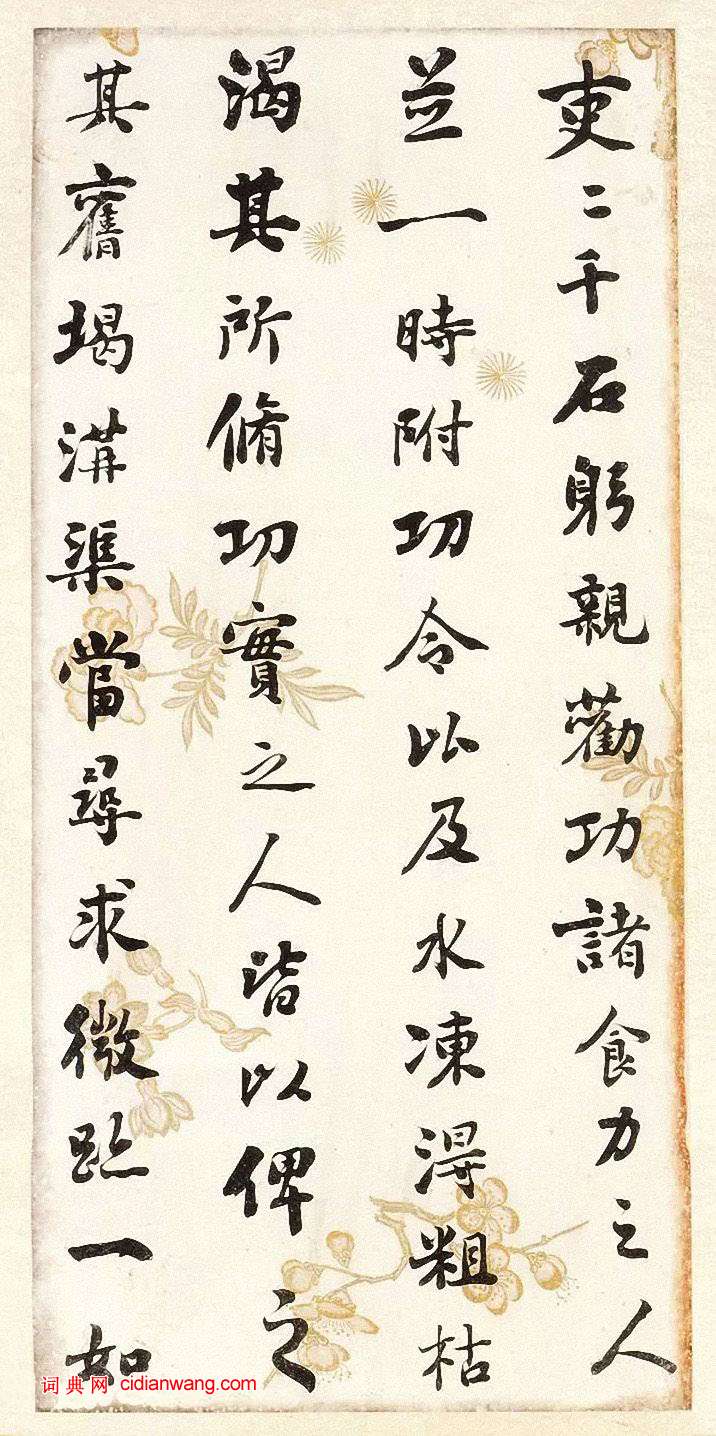 吏二千石躬親勸功諸食力之人
並一時附功令以及水凍淂粗枯
渴其所脩功實之人皆以俾之
其舊堨溝渠當尋求微跡一如
词典网 cidianwang.com